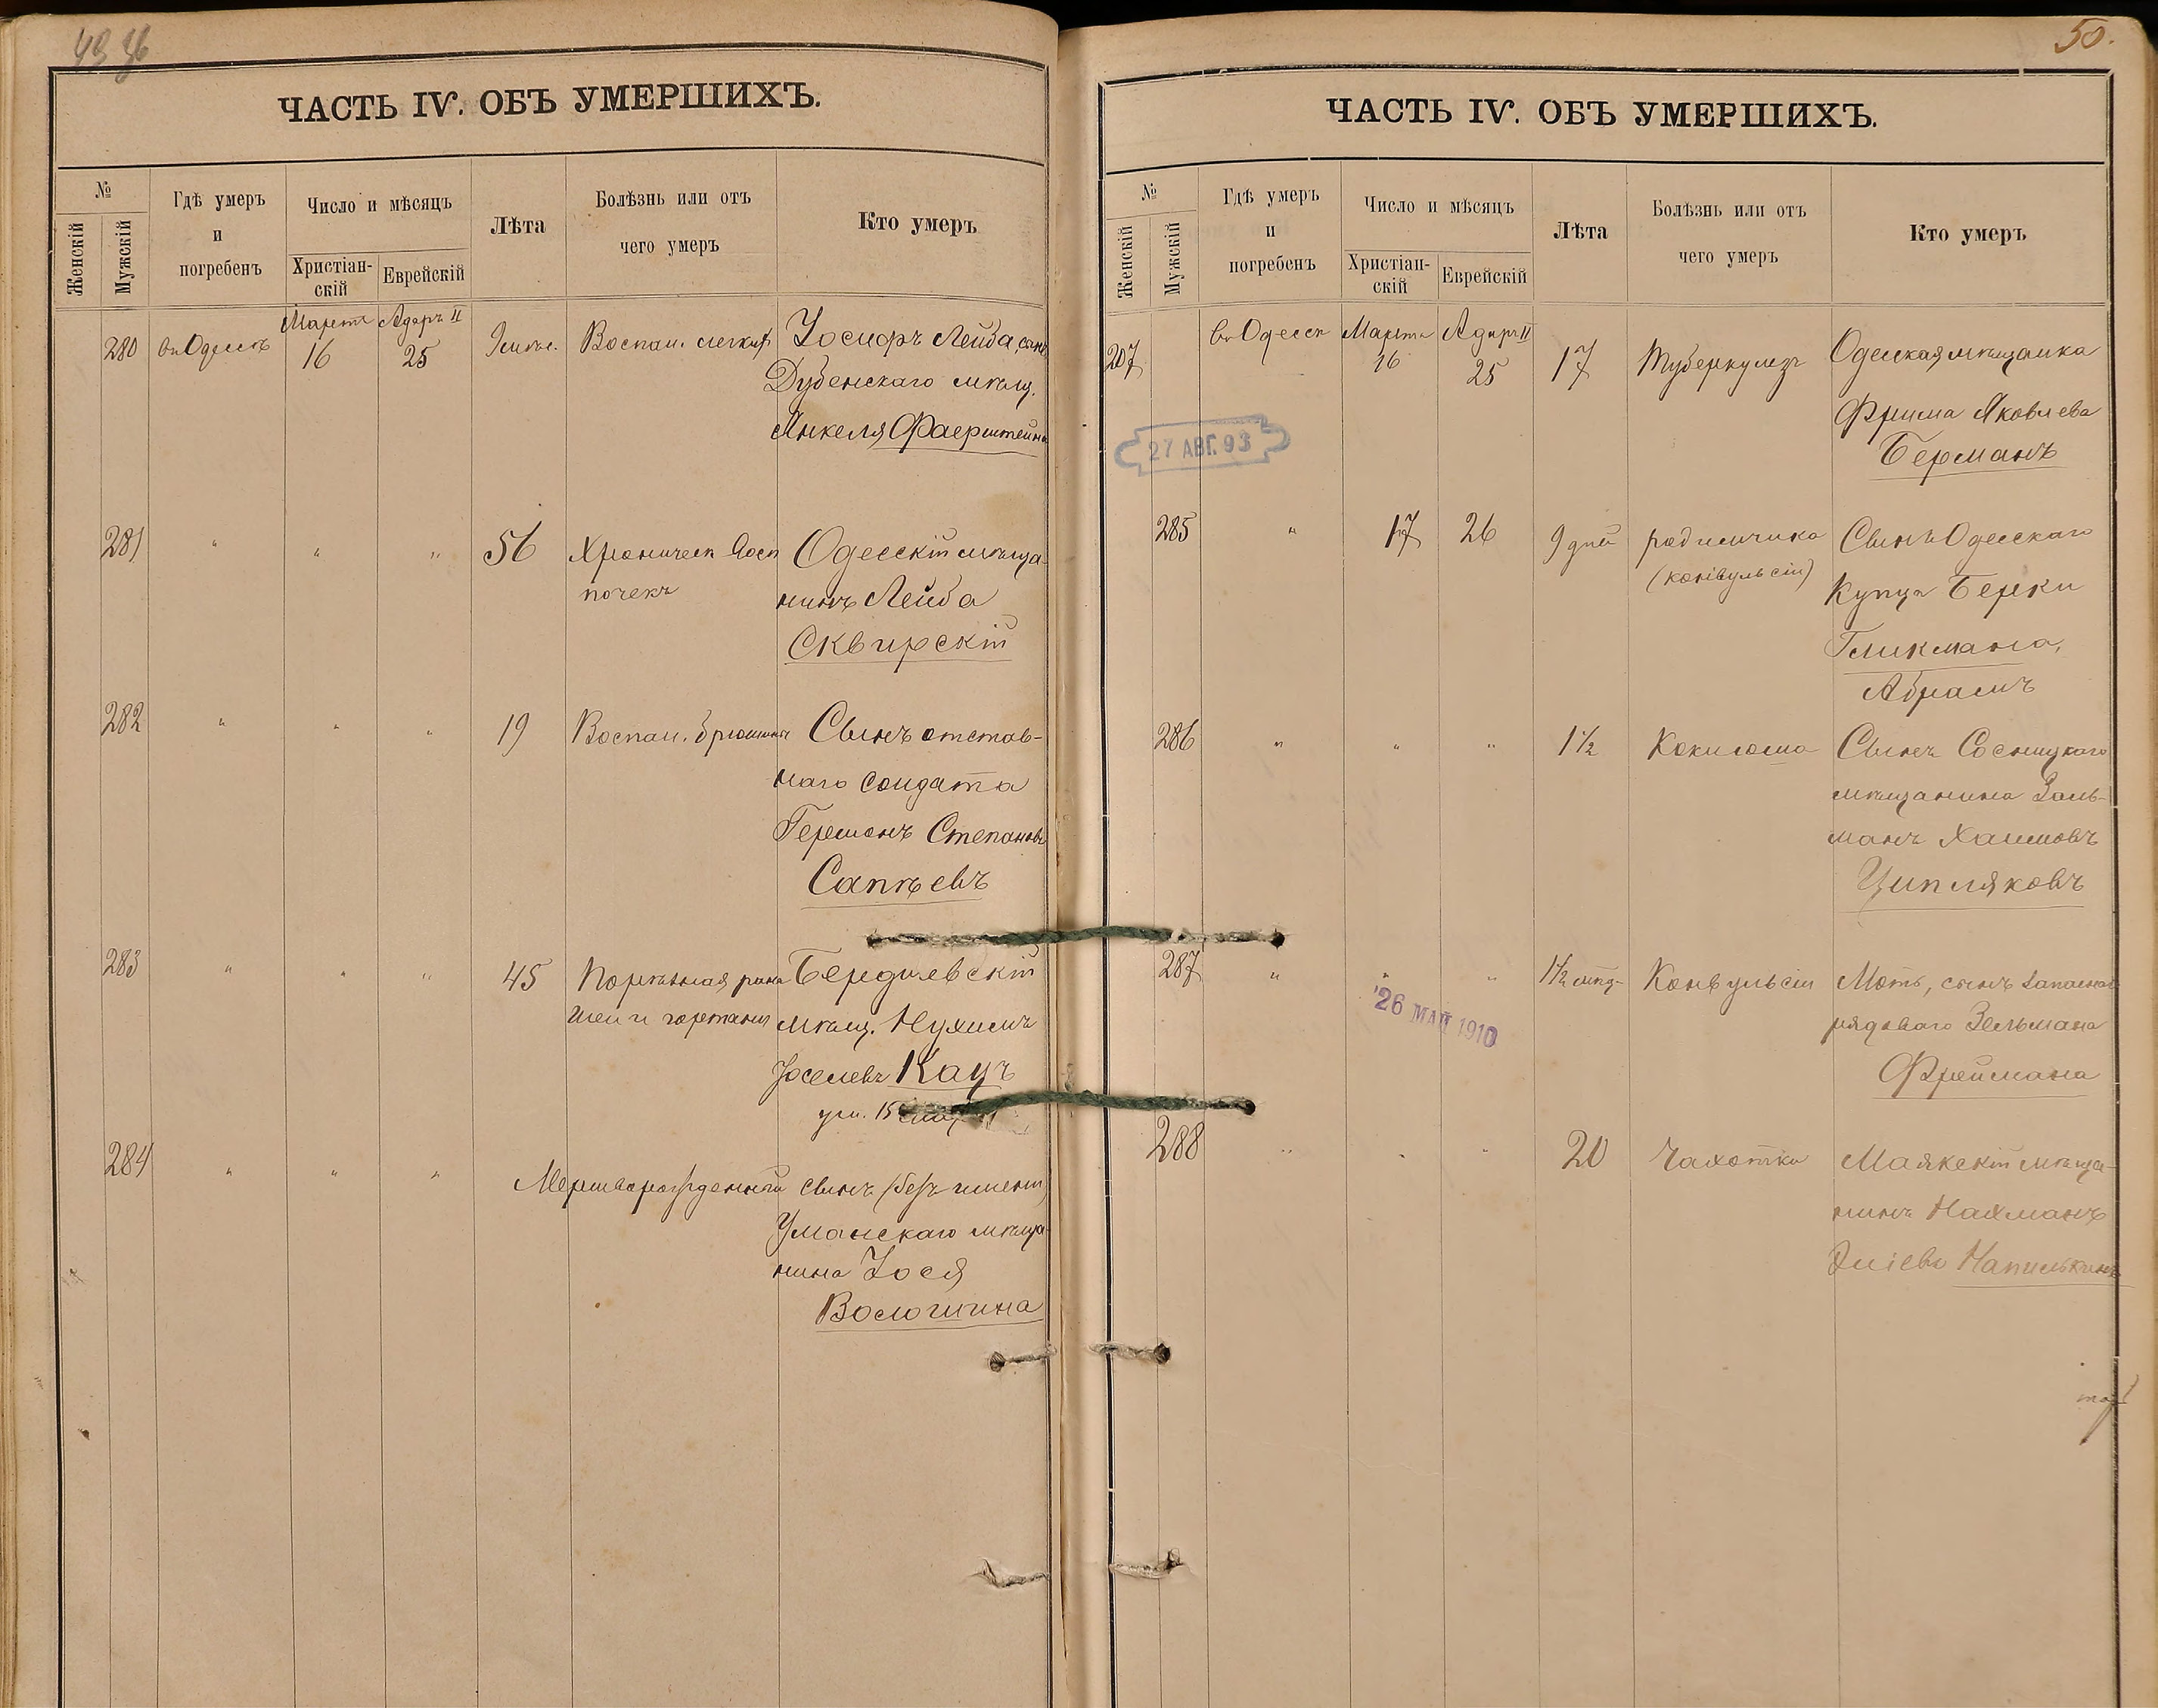 ЧАСТЬ IV. ОБЪ УМЕРШИХЪ.
№
Женскій
Мужскій
Гдѣ умеръ
и
погребенъ
Число и мѣсяцъ
Христіан-
скій
Еврейскій
Лѣта
Болѣзнь или отъ
чего умеръ
Кто умеръ
280 въ Одессѣ Мартъ 16 Адаръ II 25 Воспал. легких Іосифъ Лейба, сынъ
Дубенскаго мѣщ.
Янкеля Фаерштейна
281 " " " 56 Хроническ восп Одесскій мѣща-
почекъ нинъ Лейба
Сквирскій
282 " " " 19 Воспал. брюшины Сынъ отстав-
наго солдата
Гершонъ Степановъ
Сапѣевъ
283 " " " 45 Порѣзная рана Бердичевскій
шеи и гортани мѣщ. Нухимъ
Іоселевъ Кацъ
ум. 15
284 " " " Мертворожденный сынъ (безъ имени)
Уманскаго мѣща-
нина Іося
Волошина
50.
ЧАСТЬ IV. ОБЪ УМЕРШИХЪ.
№
Женскій
Мужскій
Гдѣ умеръ
и
погребенъ
Число и мѣсяцъ
Христіан-
скій
Еврейскій
Лѣта
Болѣзнь или отъ
чего умеръ
Кто умеръ
207 въ Одессѣ Марта 16 Адаръ II 25 17 Туберкулезъ Одесская мѣщанка
Фрима Яковлева
Берманъ
27 АВГ. 93
285 " 17 26 9 дней родимчика Сынъ Одесскаго
(конвульсіи) Купца Берки
Гликмана,
Абрамъ
286 " " " 1½ Коклюша Сынъ Сосницкаго
мѣщанина Заль-
манъ Хаимовъ
Ципляковъ
287 " " " 1½ Конвульсіи Моть, сынъ запаснаго
рядоваго Зельмана
Фреймана
26 МАЙ 1910
288 " " " 20 Чахотка Маякскій мѣща-
нинъ Нахманъ
Эліевъ